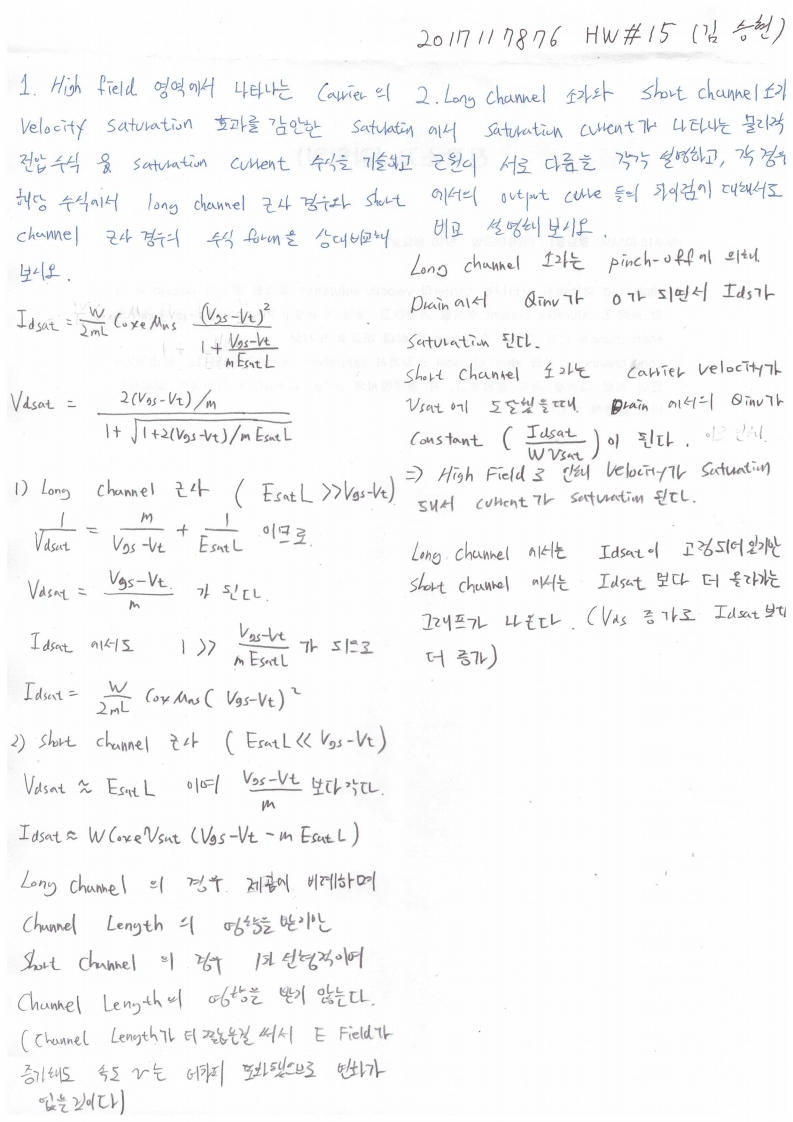 2017117876 HW#15 (김 승현)
1. High field 영역에서 나타나는 Carrier의
Velocity Saturation 효과를 감안한 Saturation
전압 수식 및 saturation current 수식을 기술하고
해당 수식에서 long channel 근사 경우와 short
channel 근사 경우의 수식 form을 상대비교해
보시오.
Idsat = W/2mL Coxe Mns (Vgs-Vt)²/(1 + (Vgs-Vt)/(m EsatL))
Vdsat = 2(Vgs-Vt)/m / (1 + √(1+2(Vgs-Vt)/m EsatL))
1) Long channel 근사 ( EsatL >> Vgs-Vt)
1/Vdsat = m/(Vgs-Vt) + 1/(EsatL) 이므로
Vdsat = (Vgs-Vt)/m 가 된다.
Idsat 에서도 1 >> (Vgs-Vt)/(m EsatL) 가 되므로
Idsat = W/2mL Cox Mns ( Vgs-Vt)²
2) short channel 근사 ( EsatL << Vgs-Vt)
Vdsat ≈ EsatL 이며 (Vgs-Vt)/m 보다 작다.
Idsat ≈ W Coxe Vsat (Vgs-Vt - m EsatL)
Long channel 의 경우 제곱에 비례하며
Channel Length 의 영향을 받지만
Short Channel 의 경우 1차 선형적이며
Channel Length의 영향을 받지 않는다.
( Channel Length가 더 짧은걸 써서 E Field가
증가해도 속도 v는 어차피 포화됐으므로 변화가
없을 것이다)
2. Long Channel 소자와 Short channel 소자
에서 Saturation current가 나타나는 물리적
근원이 서로 다름을 각각 설명하고, 각 경우
에서의 output curve 들의 차이점에 대해서도
비교 설명해 보시오.
Long channel 소자는 pinch-off에 의해
Drain에서 Qinv가 0가 되면서 Ids가
saturation 된다.
Short channel 소자는 Carrier velocity가
Vsat에 도달했을때 Drain 에서의 Qinv가
Constant ( Idsat/(W Vsat) )이 된다.
⇒ High Field로 인해 Velocity가 Saturation
돼서 current가 saturation 된다.
Long channel 에서는 Idsat이 고정되어 있지만
short channel 에서는 Idsat 보다 더 올라가는
그래프가 나온다. (Vds 증가로 Idsat 보다
더 증가)